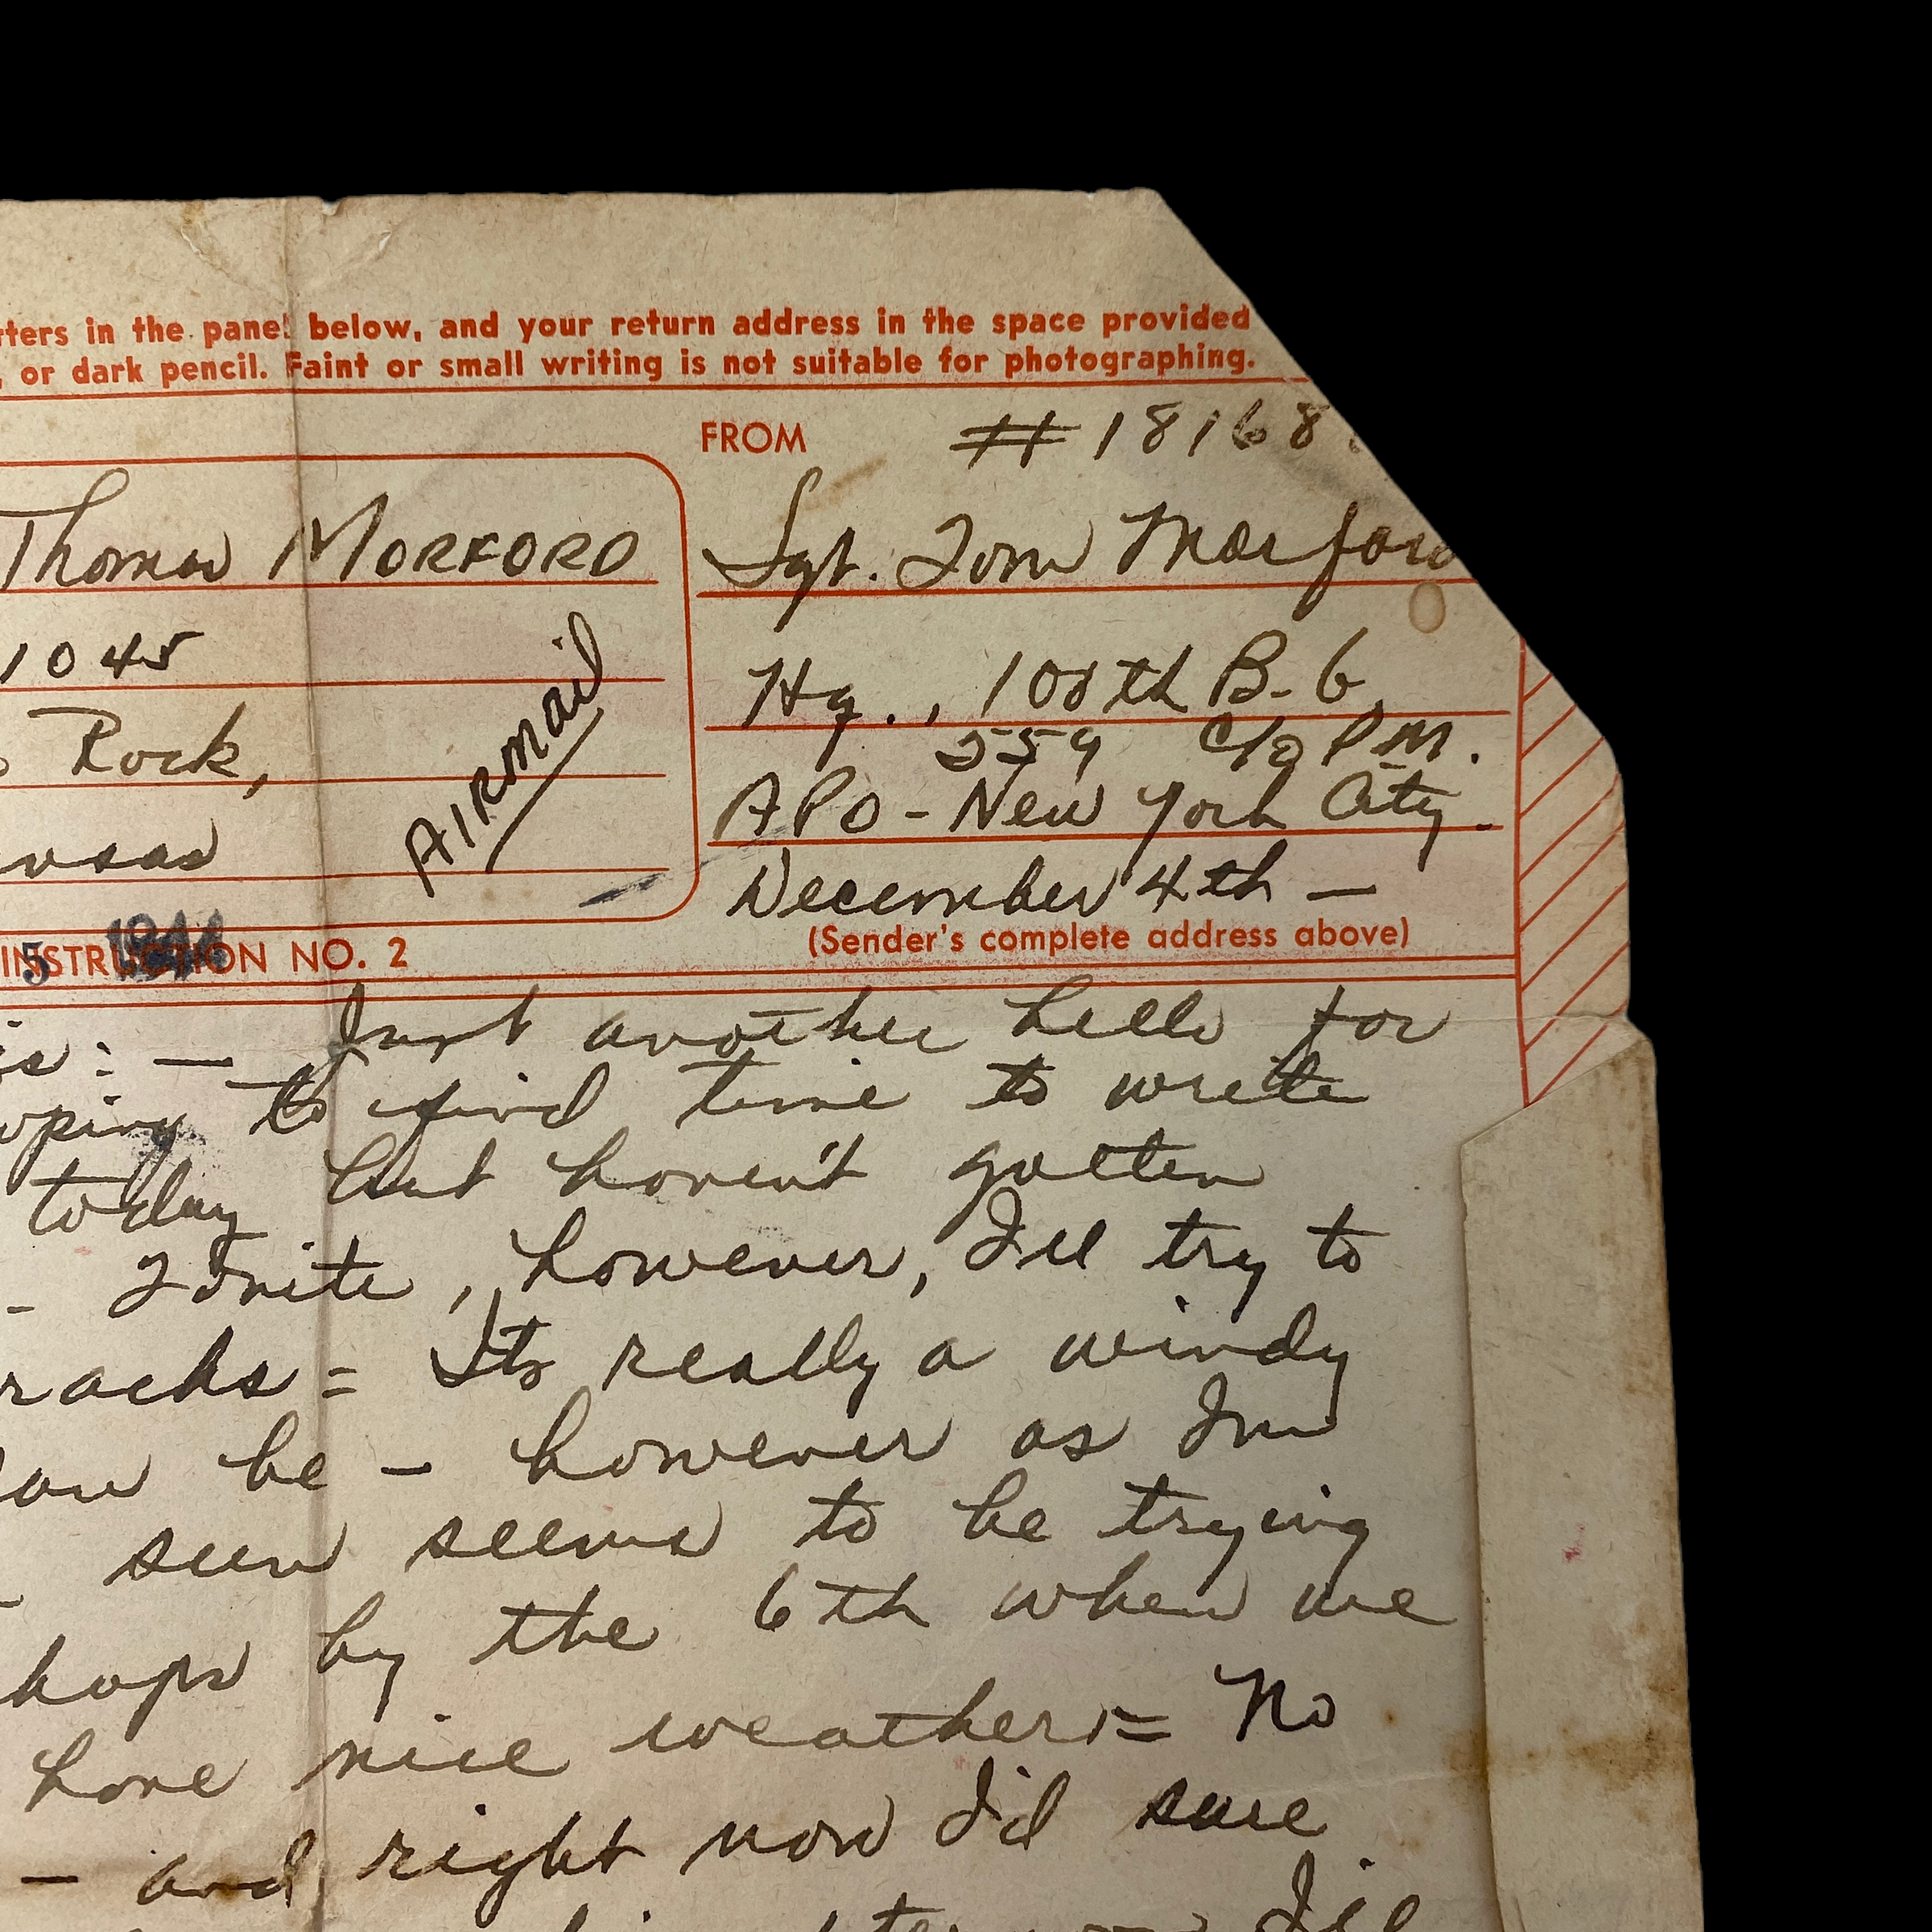 tters in the panel below, and your return address in the space provided
, or dark pencil. Faint or small writing is not suitable for photographing.
FROM #18168
Thomas MORFORD
Sgt. Tom Morford
1045
Hq., 100th B-G
Rock,
AIRMAIL
559 c/o P.M.
APO - New York City.
nsas
December 4th —
(Sender's complete address above)
5 1944
INSTRUCTION NO. 2
is: — Just another hello for
oping to find time to write
today but haven't gotten
- Tonite, however, I'll try to
racks = Its really a windy
can be - however as I'm
sun seems to be trying
haps by the 6th when we
have nice weather = No
— and right now I'd sure
I'll